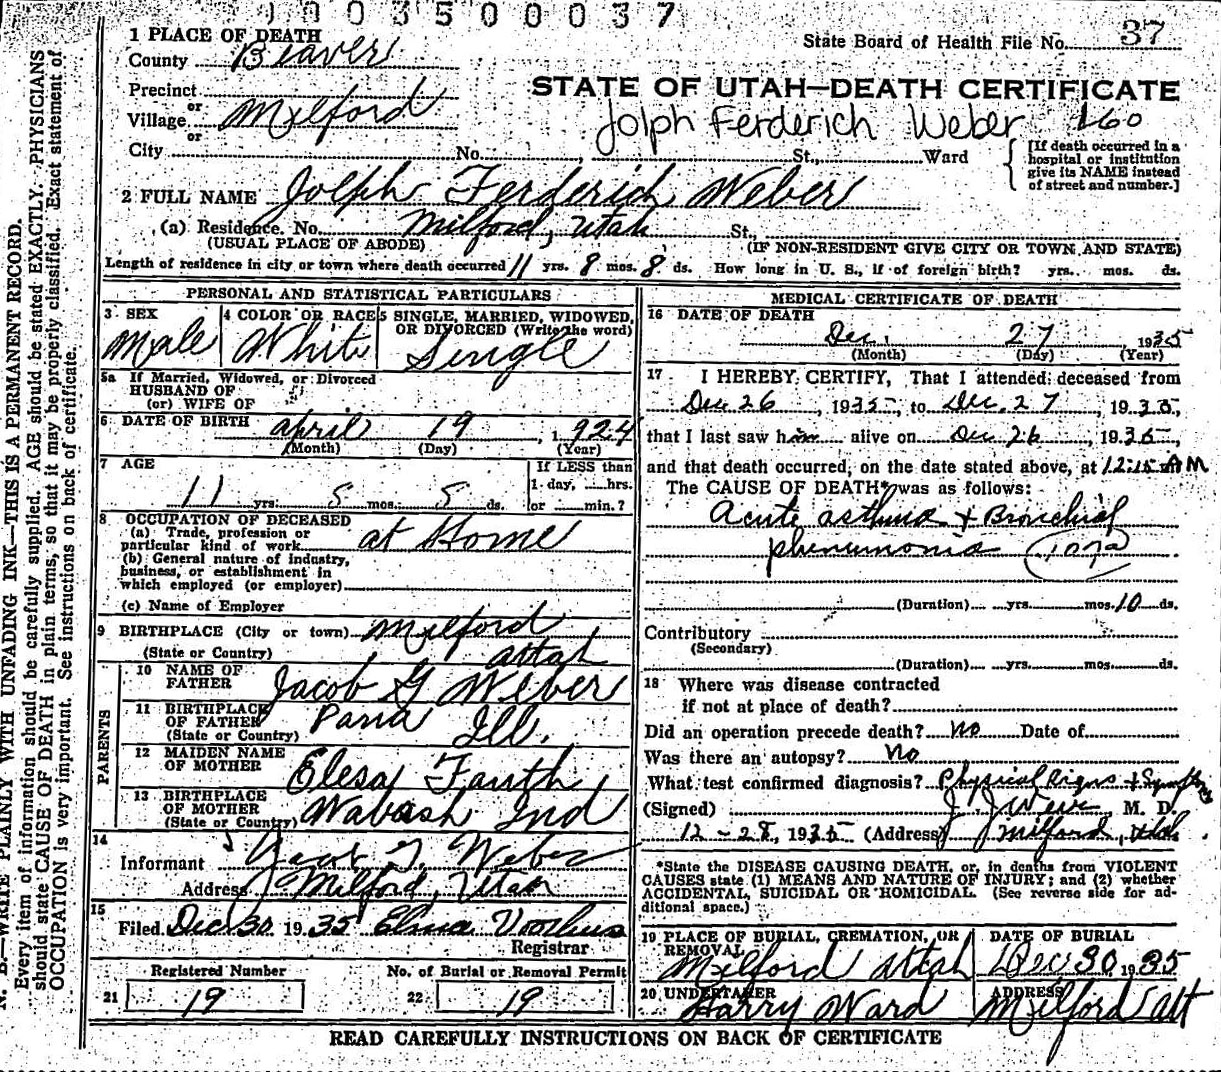 1003500037
1 PLACE OF DEATH
County Beaver
State Board of Health File No. 37
Precinct
or
Village Milford
or
City No. St., Ward
STATE OF UTAH—DEATH CERTIFICATE
Jolph Ferderich Weber 160
[If death occurred in a hospital or institution give its NAME instead of street and number.]
2 FULL NAME Jolph Ferderich Weber
(a) Residence. No. Milford, Utah St.,
(USUAL PLACE OF ABODE) (IF NON-RESIDENT GIVE CITY OR TOWN AND STATE)
Length of residence in city or town where death occurred 11 yrs. 8 mos. 8 ds. How long in U. S., if of foreign birth? yrs. mos. ds.
PERSONAL AND STATISTICAL PARTICULARS
3 SEX 4 COLOR OR RACE 5 SINGLE, MARRIED, WIDOWED,
OR DIVORCED (Write the word)
Male White Single
5a If Married, Widowed, or Divorced
HUSBAND OF
(or) WIFE OF
6 DATE OF BIRTH April 19, 1924
(Month) (Day) (Year)
7 AGE If LESS than
1 day, hrs.
11 yrs. 8 mos. 8 ds. or min.?
8 OCCUPATION OF DECEASED
(a) Trade, profession or
particular kind of work at Home
(b) General nature of industry,
business, or establishment in
which employed (or employer)
(c) Name of Employer
9 BIRTHPLACE (City or town) Milford
(State or Country) Uttah
PARENTS
10 NAME OF
FATHER Jacob G Weber
11 BIRTHPLACE
OF FATHER Pana Ill.
(State or Country)
12 MAIDEN NAME
OF MOTHER Elesa Fauth
13 BIRTHPLACE
OF MOTHER Wabash Ind
(State or Country)
14
Informant Weber
Address Milford, Utah
15
Filed Dec 30 1935 Elma Voorhus
Registrar
Registered Number No. of Burial or Removal Permit
21 19 22 19
MEDICAL CERTIFICATE OF DEATH
16 DATE OF DEATH
Dec. 27, 1935
(Month) (Day) (Year)
17 I HEREBY CERTIFY, That I attended deceased from
Dec 26, 1935, to Dec. 27, 1935,
that I last saw him alive on Dec 26, 1935,
and that death occurred, on the date stated above, at 12:15 AM
The CAUSE OF DEATH* was as follows:
Acute asthma + Bronchial
phenumonia (107a)
(Duration) yrs. mos. 10 ds.
Contributory
(Secondary)
(Duration) yrs. mos. ds.
18 Where was disease contracted
if not at place of death?
Did an operation precede death? No Date of
Was there an autopsy? No
What test confirmed diagnosis? Physical signs + Symptoms
(Signed) M. D.
12-28, 1935 (Address) Milford, Utah
*State the DISEASE CAUSING DEATH, or, in deaths from VIOLENT
CAUSES state (1) MEANS AND NATURE OF INJURY; and (2) whether
ACCIDENTAL, SUICIDAL OR HOMICIDAL. (See reverse side for ad-
ditional space.)
19 PLACE OF BURIAL, CREMATION, OR DATE OF BURIAL
REMOVAL
Milford Uttah Dec 30 1935
20 UNDERTAKER ADDRESS
Harry Ward Milford Utt
READ CAREFULLY INSTRUCTIONS ON BACK OF CERTIFICATE
N. B.—WRITE PLAINLY WITH UNFADING INK—THIS IS A PERMANENT RECORD.
Every item of information should be carefully supplied. AGE should be stated EXACTLY. PHYSICIANS
should state CAUSE OF DEATH in plain terms, so that it may be properly classified. Exact statement of
OCCUPATION is very important. See instructions on back of certificate.